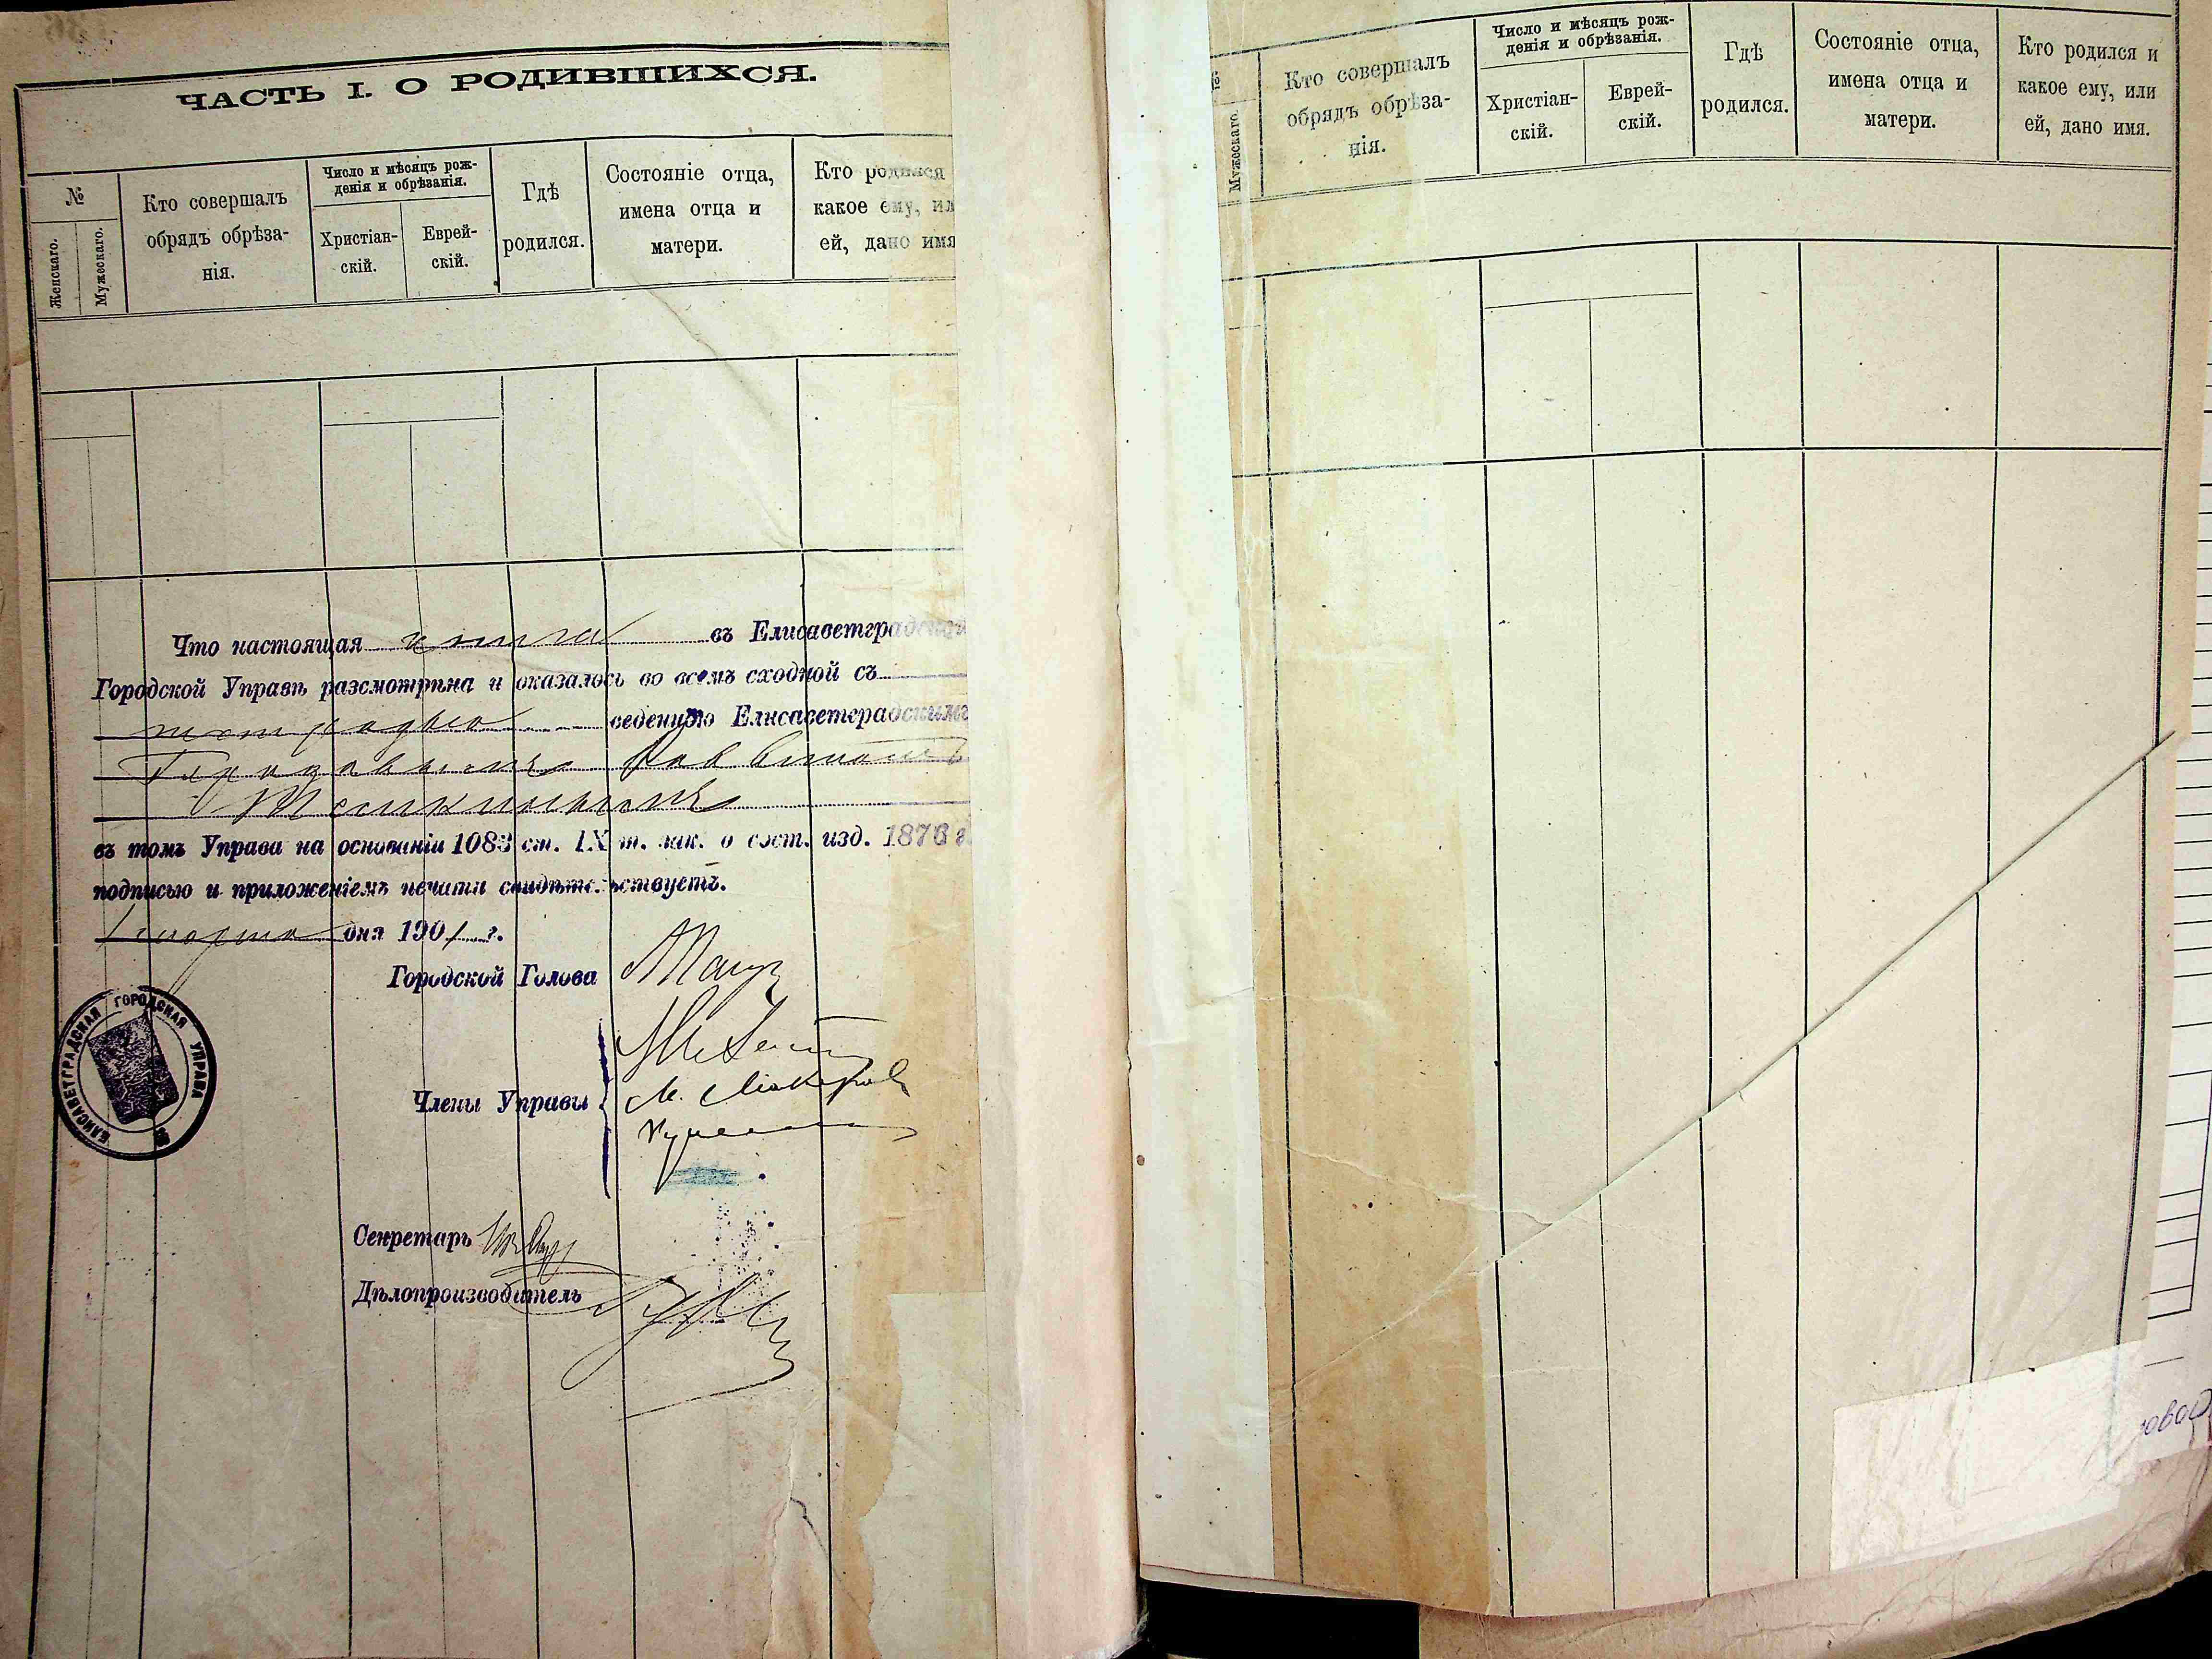 ЧАСТЬ I. О РОДИВШИХСЯ.
№
Женскаго.
Мужескаго.
Кто совершалъ
обрядъ обрѣза-
нія.
Число и мѣсяцъ рож-
денія и обрѣзанія.
Христіан-
скій.
Еврей-
скій.
Гдѣ
родился.
Состояніе отца,
имена отца и
матери.
Кто родился
какое ему, ил
ей, дано имя
Что настоящая книга въ Елисаветградской
Городской Управѣ разсмотрѣна и оказалось во всемъ сходной съ
тетрадью веденную Елисаветградскимъ
Городовымъ Раввиномъ
въ томъ Управа на основаніи 1083 ст. IX т. зак. о сост. изд. 1876 г.
подписью и приложеніемъ печати свидѣтельствуетъ.
1 марта дня 1901 г.
Городской Голова
Члены Управы
Секретарь
Дѣлопроизводитель
ЕЛИСАВЕТГРАДСКАЯ ГОРОДСКАЯ УПРАВА
№
Мужескаго.
Кто совершалъ
обрядъ обрѣза-
нія.
Число и мѣсяцъ рож-
денія и обрѣзанія.
Христіан-
скій.
Еврей-
скій.
Гдѣ
родился.
Состояніе отца,
имена отца и
матери.
Кто родился и
какое ему, или
ей, дано имя.